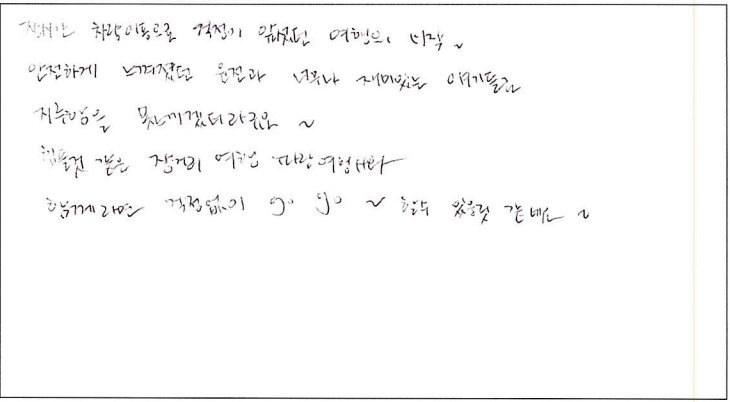 장시간 차량이동으로 걱정이 앞섰던 여행의 시작~
안전하게 느껴졌던 운전과 너무나 재미있는 얘기들로
지루함을 못느끼겠더라구요 ~
힘들것 같은 장거리 여행 따랑여행사와
함께라면 걱정없이 go go ~ 할수 있을것 같네요 ~